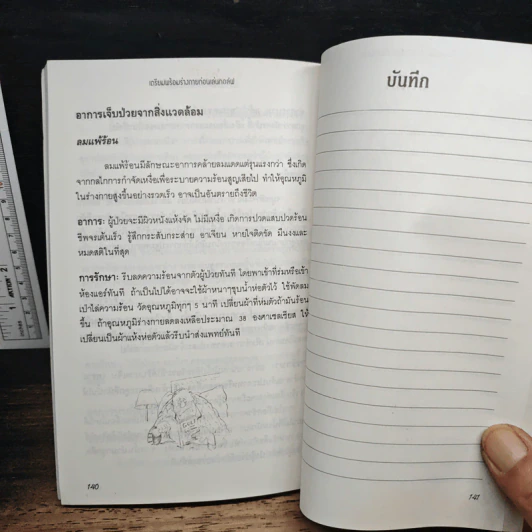 เตรียมพร้อมร่างกายก่อนเล่นกอล์ฟ
อาการเจ็บป่วยจากสิ่งแวดล้อม
ลมแพ้ร้อน
ลมแพ้ร้อนมีลักษณะอาการคล้ายลมแดดแต่รุนแรงกว่า ซึ่งเกิด
จากกลไกการกำจัดเหงื่อเพื่อระบายความร้อนสูญเสียไป ทำให้อุณหภูมิ
ในร่างกายสูงขึ้นอย่างรวดเร็ว อาจเป็นอันตรายถึงชีวิต
อาการ: ผู้ป่วยจะมีผิวหนังแห้งจัด ไม่มีเหงื่อ เกิดการปวดแสบปวดร้อน
ชีพจรเต้นเร็ว รู้สึกกระสับกระส่าย อาเจียน หายใจติดขัด มึนงงและ
หมดสติในที่สุด
การรักษา: รีบลดความร้อนจากตัวผู้ป่วยทันที โดยพาเข้าที่ร่มหรือเข้า
ห้องแอร์ทันที ถ้าเป็นไปได้อาจจะใช้ผ้าหนาๆชุบน้ำห่อตัวไว้ ใช้พัดลม
เป่าไล่ความร้อน วัดอุณหภูมิทุกๆ 5 นาที เปลี่ยนผ้าที่ห่มตัวถ้ามันร้อน
ขึ้น ถ้าอุณหภูมิร่างกายลดลงเหลือประมาณ 38 องศาเซลเซียส ให้
เปลี่ยนเป็นผ้าแห้งห่อตัวแล้วรีบนำส่งแพทย์ทันที
140
บันทึก
141